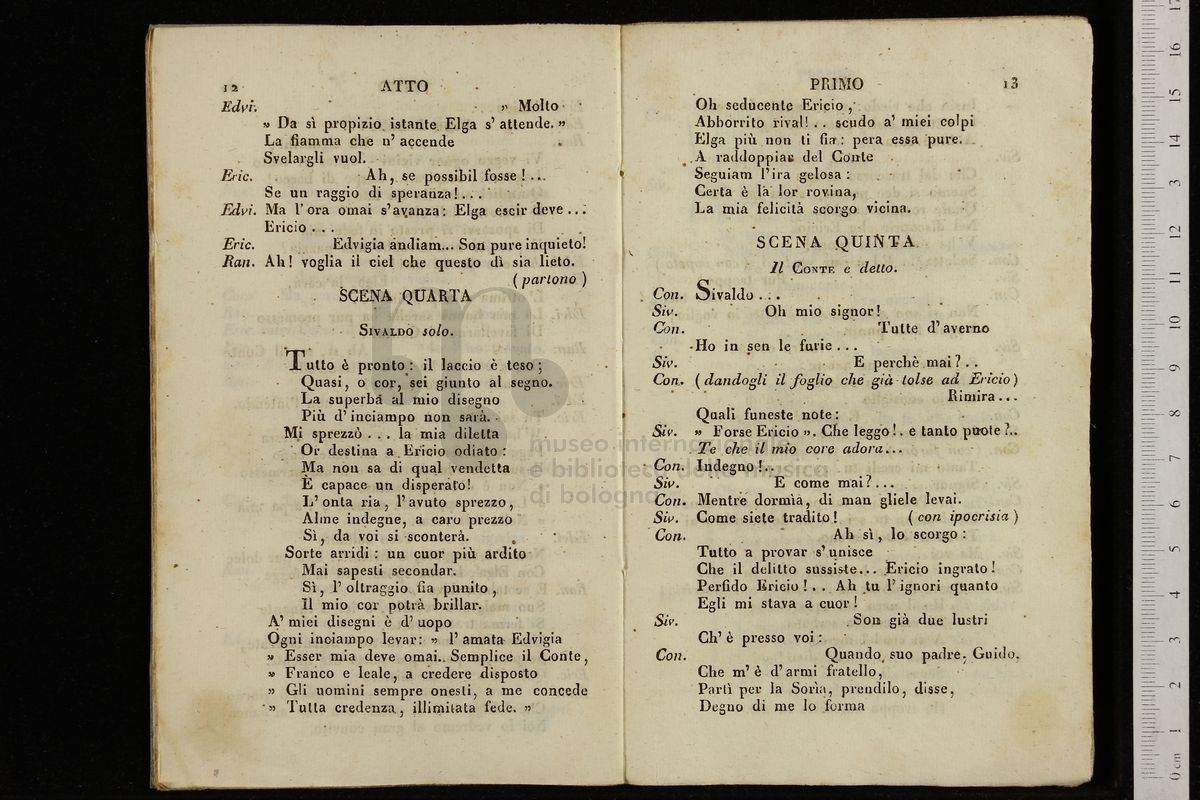 12 ATTO
Edvi. » Molto
» Da sì propizio istante Elga s' attende. »
La fiamma che n' accende
Svelargli vuol.
Eric. Ah, se possibil fosse! ...
Se un raggio di speranza! ...
Edvi. Ma l' ora omai s' avanza: Elga escir deve ...
Ericio ...
Eric. Edvigia andiam... Son pure inquieto!
Ran. Ah! voglia il ciel che questo dì sia lieto.
( partono )
SCENA QUARTA
SIVALDO solo.
Tutto è pronto: il laccio è teso;
Quasi, o cor, sei giunto al segno.
La superba al mio disegno
Più d' inciampo non sarà.
Mi sprezzò ... la mia diletta
Or destina a Ericio odiato:
Ma non sa di qual vendetta
È capace un disperato!
L' onta ria, l' avuto sprezzo,
Alme indegne, a caro prezzo
Sì, da voi si sconterà.
Sorte arridi: un cuor più ardito
Mai sapesti secondar.
Sì, l' oltraggio fia punito,
Il mio cor potrà brillar.
A' miei disegni è d' uopo
Ogni inciampo levar: » l' amata Edvigia
» Esser mia deve omai.. Semplice il Conte,
» Franco e leale, a credere disposto
» Gli uomini sempre onesti, a me concede
» Tutta credenza, illimitata fede. »
PRIMO 13
Oh seducente Ericio,
Abborrito rival! .. scudo a' miei colpi
Elga più non ti fia: pera essa pure.
A raddoppiar del Conte
Seguiam l' ira gelosa:
Certa è la lor rovina,
La mia felicità scorgo vicina.
SCENA QUINTA
Il CONTE e detto.
Con. Sivaldo ...
Siv. Oh mio signor!
Con. Tutte d' averno
Ho in sen le furie ...
Siv. E perchè mai? ..
Con. ( dandogli il foglio che già tolse ad Ericio )
Rimira ...
Quali funeste note:
Siv. » Forse Ericio ». Che leggo!. e tanto puote?..
Te che il mio core adora...
Con. Indegno!..
Siv. E come mai? ...
Con. Mentre dormìa, di man gliele levai.
Siv. Come siete tradito! ( con ipocrisia )
Con. Ah sì, lo scorgo:
Tutto a provar s' unisce
Che il delitto sussiste... Ericio ingrato!
Perfido Ericio! .. Ah tu l' ignori quanto
Egli mi stava a cuor!
Siv. Son già due lustri
Ch' è presso voi:
Con. Quando suo padre, Guido,
Che m' è d' armi fratello,
Partì per la Sorìa, prendilo, disse,
Degno di me lo forma
museo internazionale
e biblioteca della musica
di bologna
0 cm 1 2 3 4 5 6 7 8 9 10 11 12 13 14 15 16 17